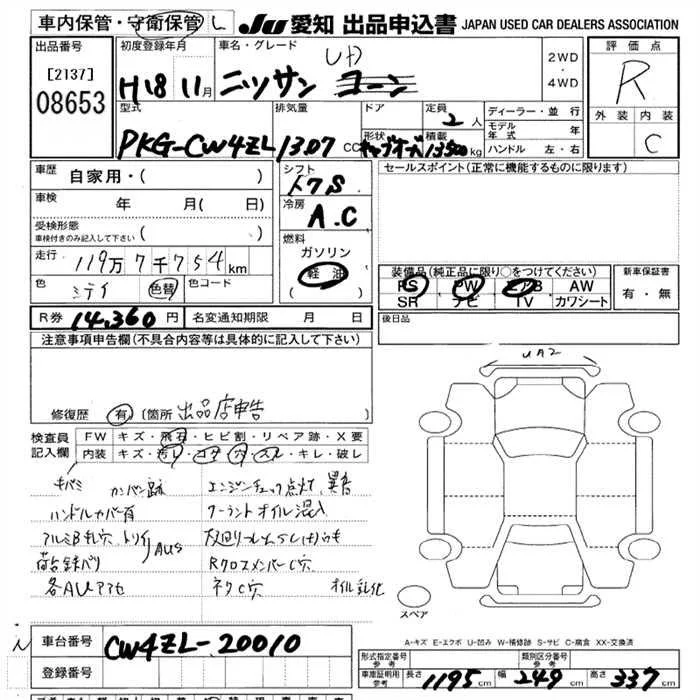 車内保管・守衛保管 L JU 愛知 出品申込書 JAPAN USED CAR DEALERS ASSOCIATION
出品番号 [2137] 08653
初度登録年月 H18 11月
車名・グレード ニッサン UD
2WD・4WD
評価点 R
外装 内装 C
型式 PKG-CW4ZL
排気量 1307 CC
ドア 形状
定員 2人
積載 13500kg
ディーラー・並行
モデル年式 年
ハンドル 左・右
車歴 自家用・( )
車検 年 月( 日)
受検形態
車検付きのみ記入して下さい ( )
走行 119万7千754km
色 色替 色コード
シフト
冷房 A.C
燃料 ガソリン 軽油 ( )
セールスポイント(正常に機能するものに限ります)
装備品(純正品に限り○をつけてください)
PS PW エアB AW
SR ナビ TV カワシート
新車保証書 有・無
R券 14,360円 名変通知期限 月 日
後日品
注意事項申告欄(不具合内容等は具体的に記入して下さい)
UA2
修復歴 有 (箇所 出品店申告
検査員記入欄 FW キズ・飛石・ヒビ割・リペア跡・X要
内装 キズ・汚レ・コゲ・穴・スレ・キレ・破レ
キバミ カンバン跡 エンジンチェック点灯、異音
ハンドルカバー有 クーラントオイル混入
アルミB キレ穴
Rクロスメンバー C穴
各AUアアセ ネタC穴 オイル乳化
スペア
A-キズ E-エクボ U-凹み W-補修跡 S-サビ C-腐食 XX-交換済
車台番号 CW4ZL-20010
登録番号
形式指定番号 参考
類別区分番号 参考
車庫証明用 参考 長さ 1195cm 幅 249cm 高さ 337cm